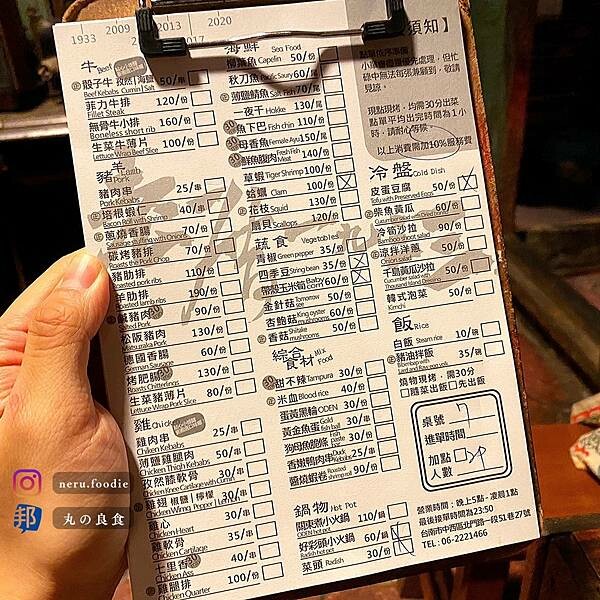 1933 2009 2013 2020
牛Beef
骰子牛 孜然|海鹽 50/串
Beef Kebabs Cumin|Salt
菲力牛排 120/份
Fillet Steak
無骨牛小排 160/份
Boneless short rib
生菜牛薄片 100/份
Lettuce Wrap Beef Slice
豬羊 Lamb
豬肉串 25/串
Pork Kebabs
培根蝦仁 40/串
Bacon Roll with Shrimp
蔥燒香腸 70/份
Sausage stuffing with Onion
碳烤豬排 70/份
Roasts the Pork Chop
豬肋排 110/份
Roasted pork ribs
羊肋排 190/份
Roasted lamb ribs
鹹豬肉 90/份
Salted Pork
松阪豬肉 130/份
Matsuzaka Pork
德國香腸 60/份
German Sausage
烤肥腸 130/份
Roasts Chitterlings
生菜豬薄片 80/份
Lettuce Wrap Pork Slice
雞Chicken
雞肉串 25/串
Chiken Kebabs
薄鹽雞腿肉 50/串
Chicken Thigh Kebabs
孜然膝軟骨 30/串
Chicken Knee Cartilage with Cumin
雞翅 椒鹽|檸檬 30/串
Chicken Wimg Pepper|Lemon
雞心 30/串
Chicken Heart
雞軟骨 35/串
Chicken Cartilage
七里香 40/串
Chicken Ass
雞腿排 100/份
Chicken Quarter
海鮮 Sea Food
柳葉魚 Capelin 50/份
秋刀魚 Pacific Saury 60/尾
薄鹽鯖魚 Salt Fish 70/尾
一夜干 Hokke 130/尾
魚下巴 Fish chin 110/份
母香魚 Female Ayu 150/尾
鮮魚腹肉 Fresh Fish Meat 140/份
草蝦 Tiger Shrimp 100/份
蛤蠣 Clam 100/份
花枝 Squid 130/份
扇貝 Scallops 120/份
蔬食 Vegetables
青椒 Green pepper 35/份
四季豆 String bean 35/份
帶殼玉米筍 Baby corn 60/份
金針菇 Tomorrow see 50/份
杏鮑菇 King oyster mushrooms 60/份
香菇 Shiitake mushrooms 50/份
綜合食材 Mix Food
甜不辣 Tampura 30/份
米血 Blood rice 40/份
蛋黃黑輪 ODEN 30/份
黃金魚蛋 Gold fish ball 30/串
狗母魚脆條 Fish paste bar 30/份
香嫩鴨肉串 Duck Kebabs 25/串
鹽燒蝦卷 Roasted shrimp roll 90/份
鍋物 Hot Pot
關東煮小火鍋 110/鍋
ODEN hot pot
好彩頭小火鍋 60/鍋
Radish hot pot
菜頭 Radish 30/份
須知】
點單依序準備
小菜會儘量優先處理，但忙
碌中無法每張兼顧到，敬請
見諒。
現點現烤，均需30分出菜
點單平均出完時間為1小
時，請耐心等候。
以上消費需加10%服務費
冷盤 Cold Dish
皮蛋豆腐 50/份
Tofu with Preserved Eggs
柴魚黃瓜 60/份
Cucumber salad with Dried bonito
冷筍沙拉 90/份
Bamboo shoot salad
涼拌洋蔥 50/份
Onion salad
千島黃瓜沙拉 50/份
Cucumber salad with Thousand Island Dressing
韓式泡菜 50/份
Kimchi
飯 Rice
白飯 Steam rice 10/碗
豬油拌飯 35/碗
燒物現烤，需30分
□隨菜出飯□先出飯
桌號 7
進單時間
加點 □
人數 2P
營業時間：晚上5點-凌晨1點
最後接單時間為23:50
台南市中西區北門路一段51巷27號
TEL: 06-2221466
neru.foodie
邦 丸の良食